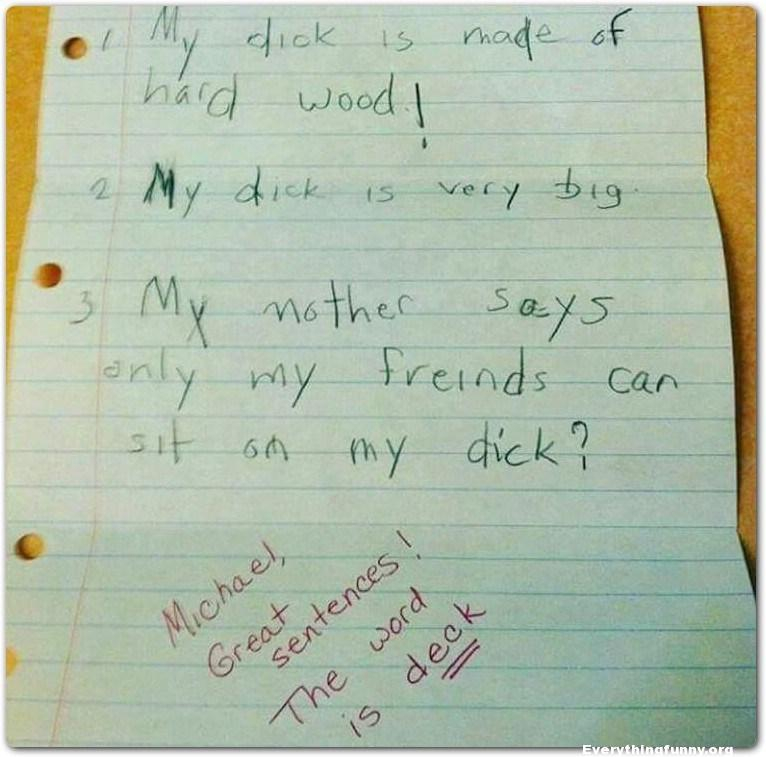 1 My dick is made of
hard wood!
2 My dick is very big.
3 My mother says
only my freinds can
sit on my dick?
Michael,
Great
sentences!
The word
is deck
Everythingfunny.org